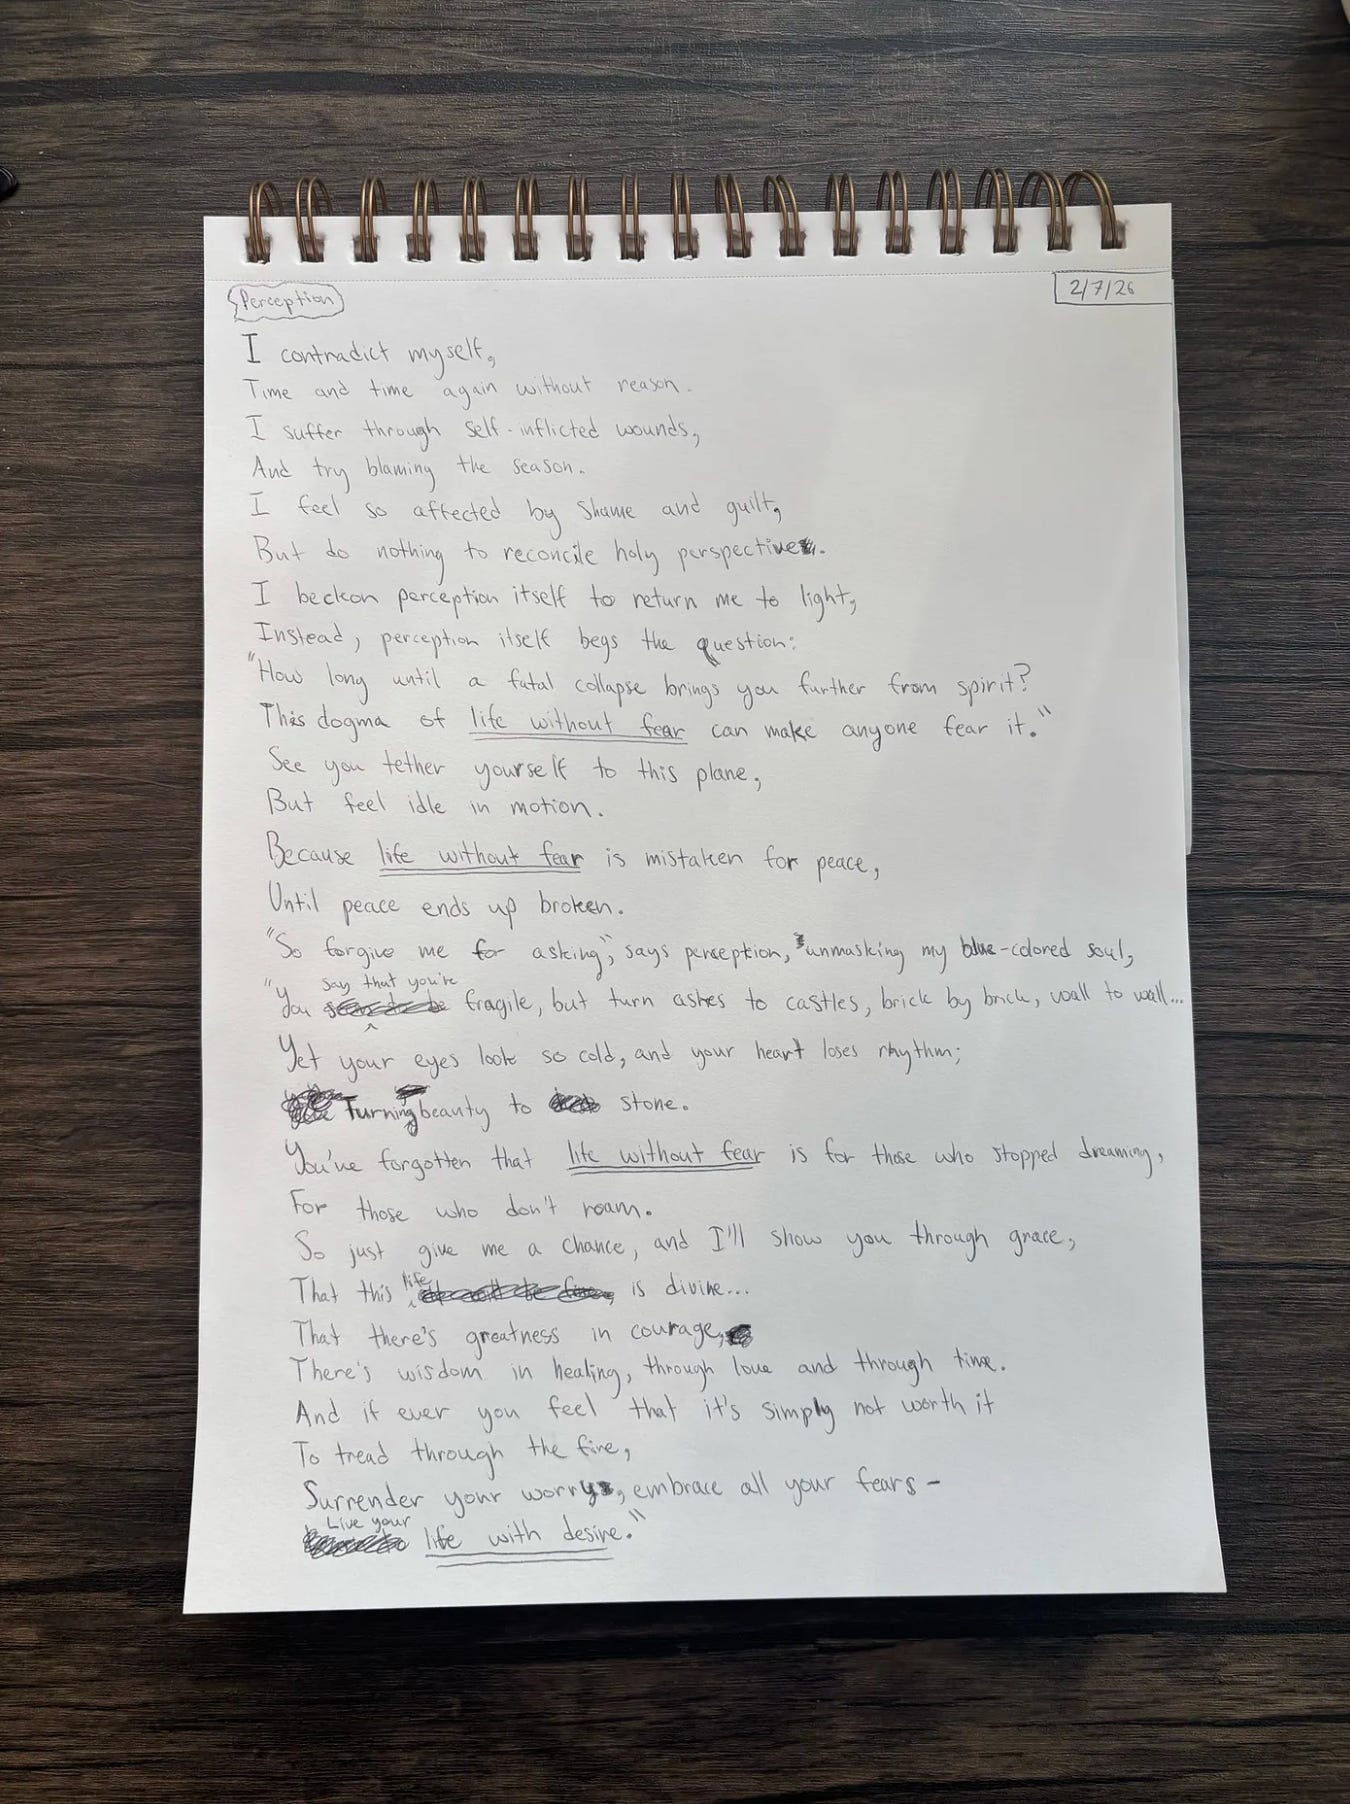 Perception
2/7/26
I contradict myself,
Time and time again without reason.
I suffer through self-inflicted wounds,
And try blaming the season.
I feel so affected by shame and guilt,
But do nothing to reconcile holy perspective.
I beckon perception itself to return me to light,
Instead, perception itself begs the question:
"How long until a fatal collapse brings you further from spirit?
This dogma of life without fear can make anyone fear it."
See you tether yourself to this plane,
But feel idle in motion.
Because life without fear is mistaken for peace,
Until peace ends up broken.
"So forgive me for asking", says perception, unmasking my blue-colored soul,
"You say that you're fragile, but turn ashes to castles, brick by brick, wall to wall...
Yet your eyes look so cold, and your heart loses rhythm;
Turning beauty to stone.
You've forgotten that life without fear is for those who stopped dreaming,
For those who don't roam.
So just give me a chance, and I'll show you through grace,
That this life is divine...
That there's greatness in courage,
There's wisdom in healing, through love and through time.
And if ever you feel that it's simply not worth it
To tread through the fire,
Surrender your worry, embrace all your fears-
Live your life with desire."